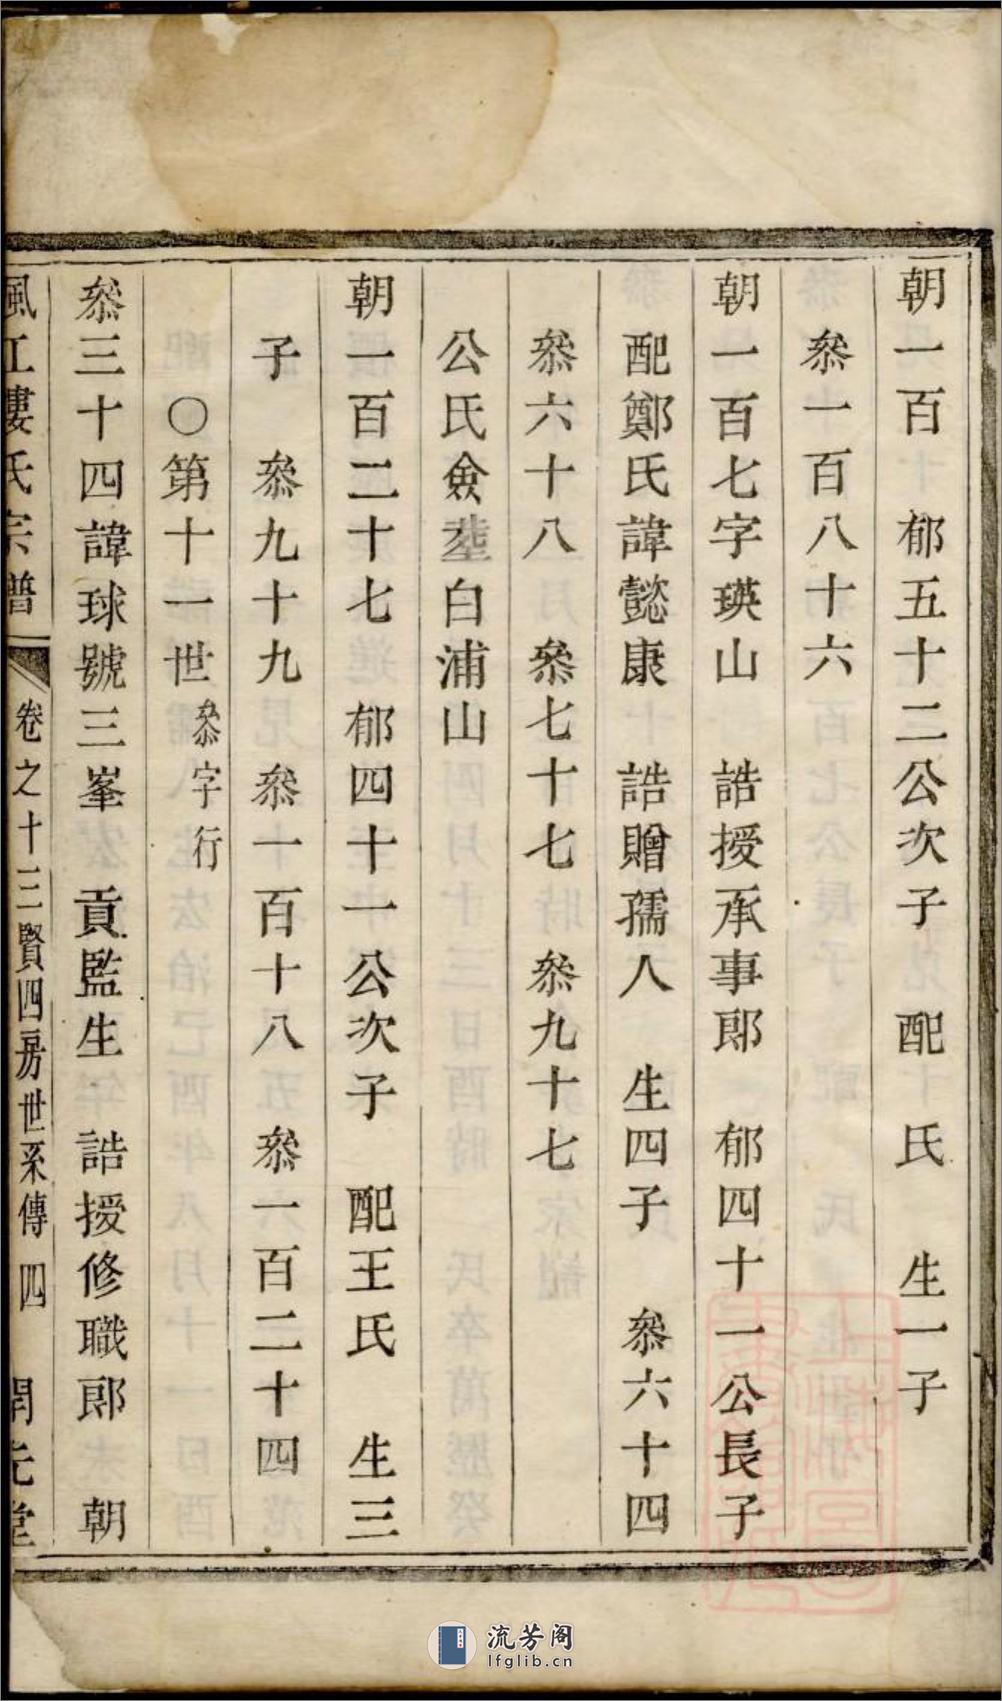 朝一百　郁五十二公次子　配　氏　生一子
叅一百八十六
朝一百七字瑛山　誥授承事郎　郁四十一公長子
配鄭氏諱懿康　誥贈孺人　生四子　叅六十四
叅六十八　叅七十七　叅九十七
公氏僉塟白浦山
朝一百二十七　郁四十一公次子　配王氏　生三
子　叅九十九　叅一百十八　叅一百二十四
〇第十一世叅字行
叅三十四諱球號三峯　貢監生　誥授修職郎　朝
氏宗譜　卷之十三賢四房世系傳　四
流芳阁
lfglib.cn